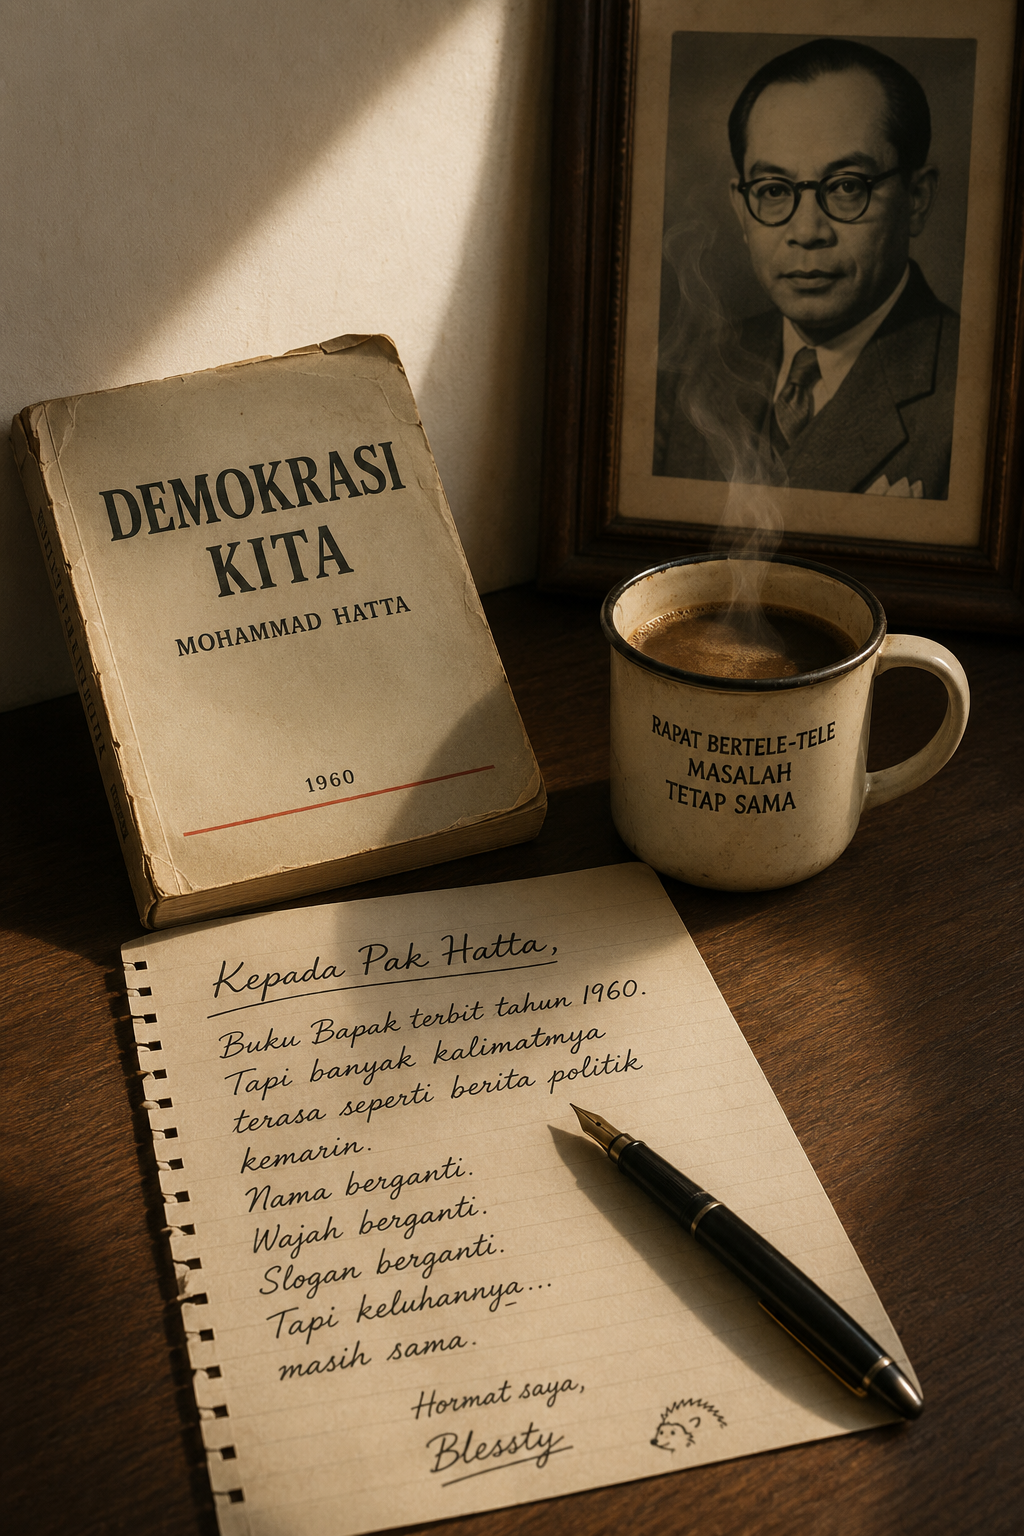 DEMOKRASI
KITA
MOHAMMAD HATTA
1960
RAPAT BERTELE-TELE
MASALAH
TETAP SAMA
Kepada Pak Hatta,
Buku Bapak terbit tahun 1960.
Tapi banyak kalimatmya
terasa seperti berita politik
kemarin.
Nama berganti.
Wajah berganti.
Slogan berganti.
Tapi keluhannya...
masih sama.
Hormat saya,
Blessty